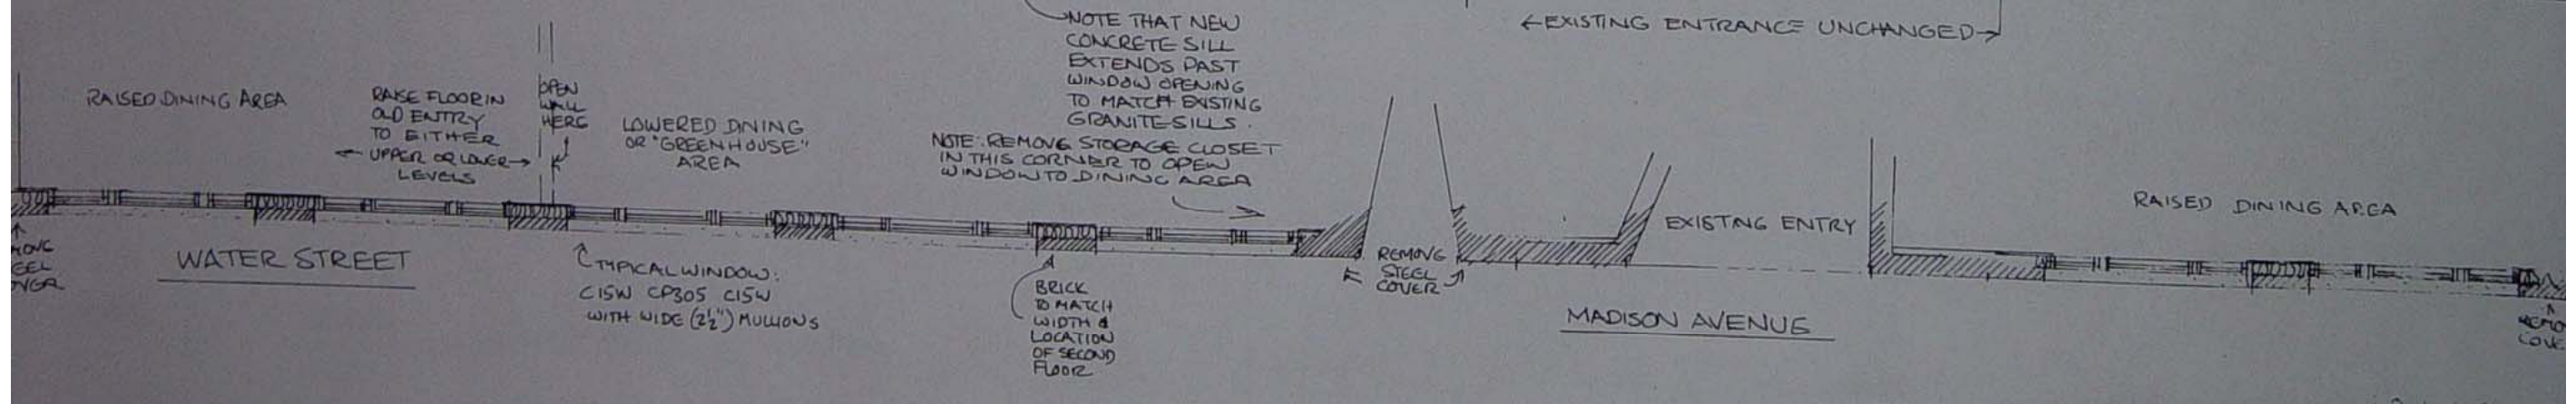 NOTE THAT NEW
CONCRETE SILL
EXTENDS PAST
WINDOW OPENING
TO MATCH EXISTING
GRANITE SILLS.
←EXISTING ENTRANCE UNCHANGED→
RAISED DINING AREA
RAISE FLOOR IN
OLD ENTRY
TO EITHER
← UPPER OR LOWER →
LEVELS
OPEN
WALL
HERE
LOWERED DINING
OR "GREENHOUSE"
AREA
NOTE: REMOVE STORAGE CLOSET
IN THIS CORNER TO OPEN
WINDOW TO DINING AREA
EXISTING ENTRY
RAISED DINING AREA
WATER STREET
TYPICAL WINDOW:
C15W CP305 C15W
WITH WIDE (2½") MULLIONS
BRICK
TO MATCH
WIDTH &
LOCATION
OF SECOND
FLOOR
REMOVE
STEEL
COVER
MADISON AVENUE